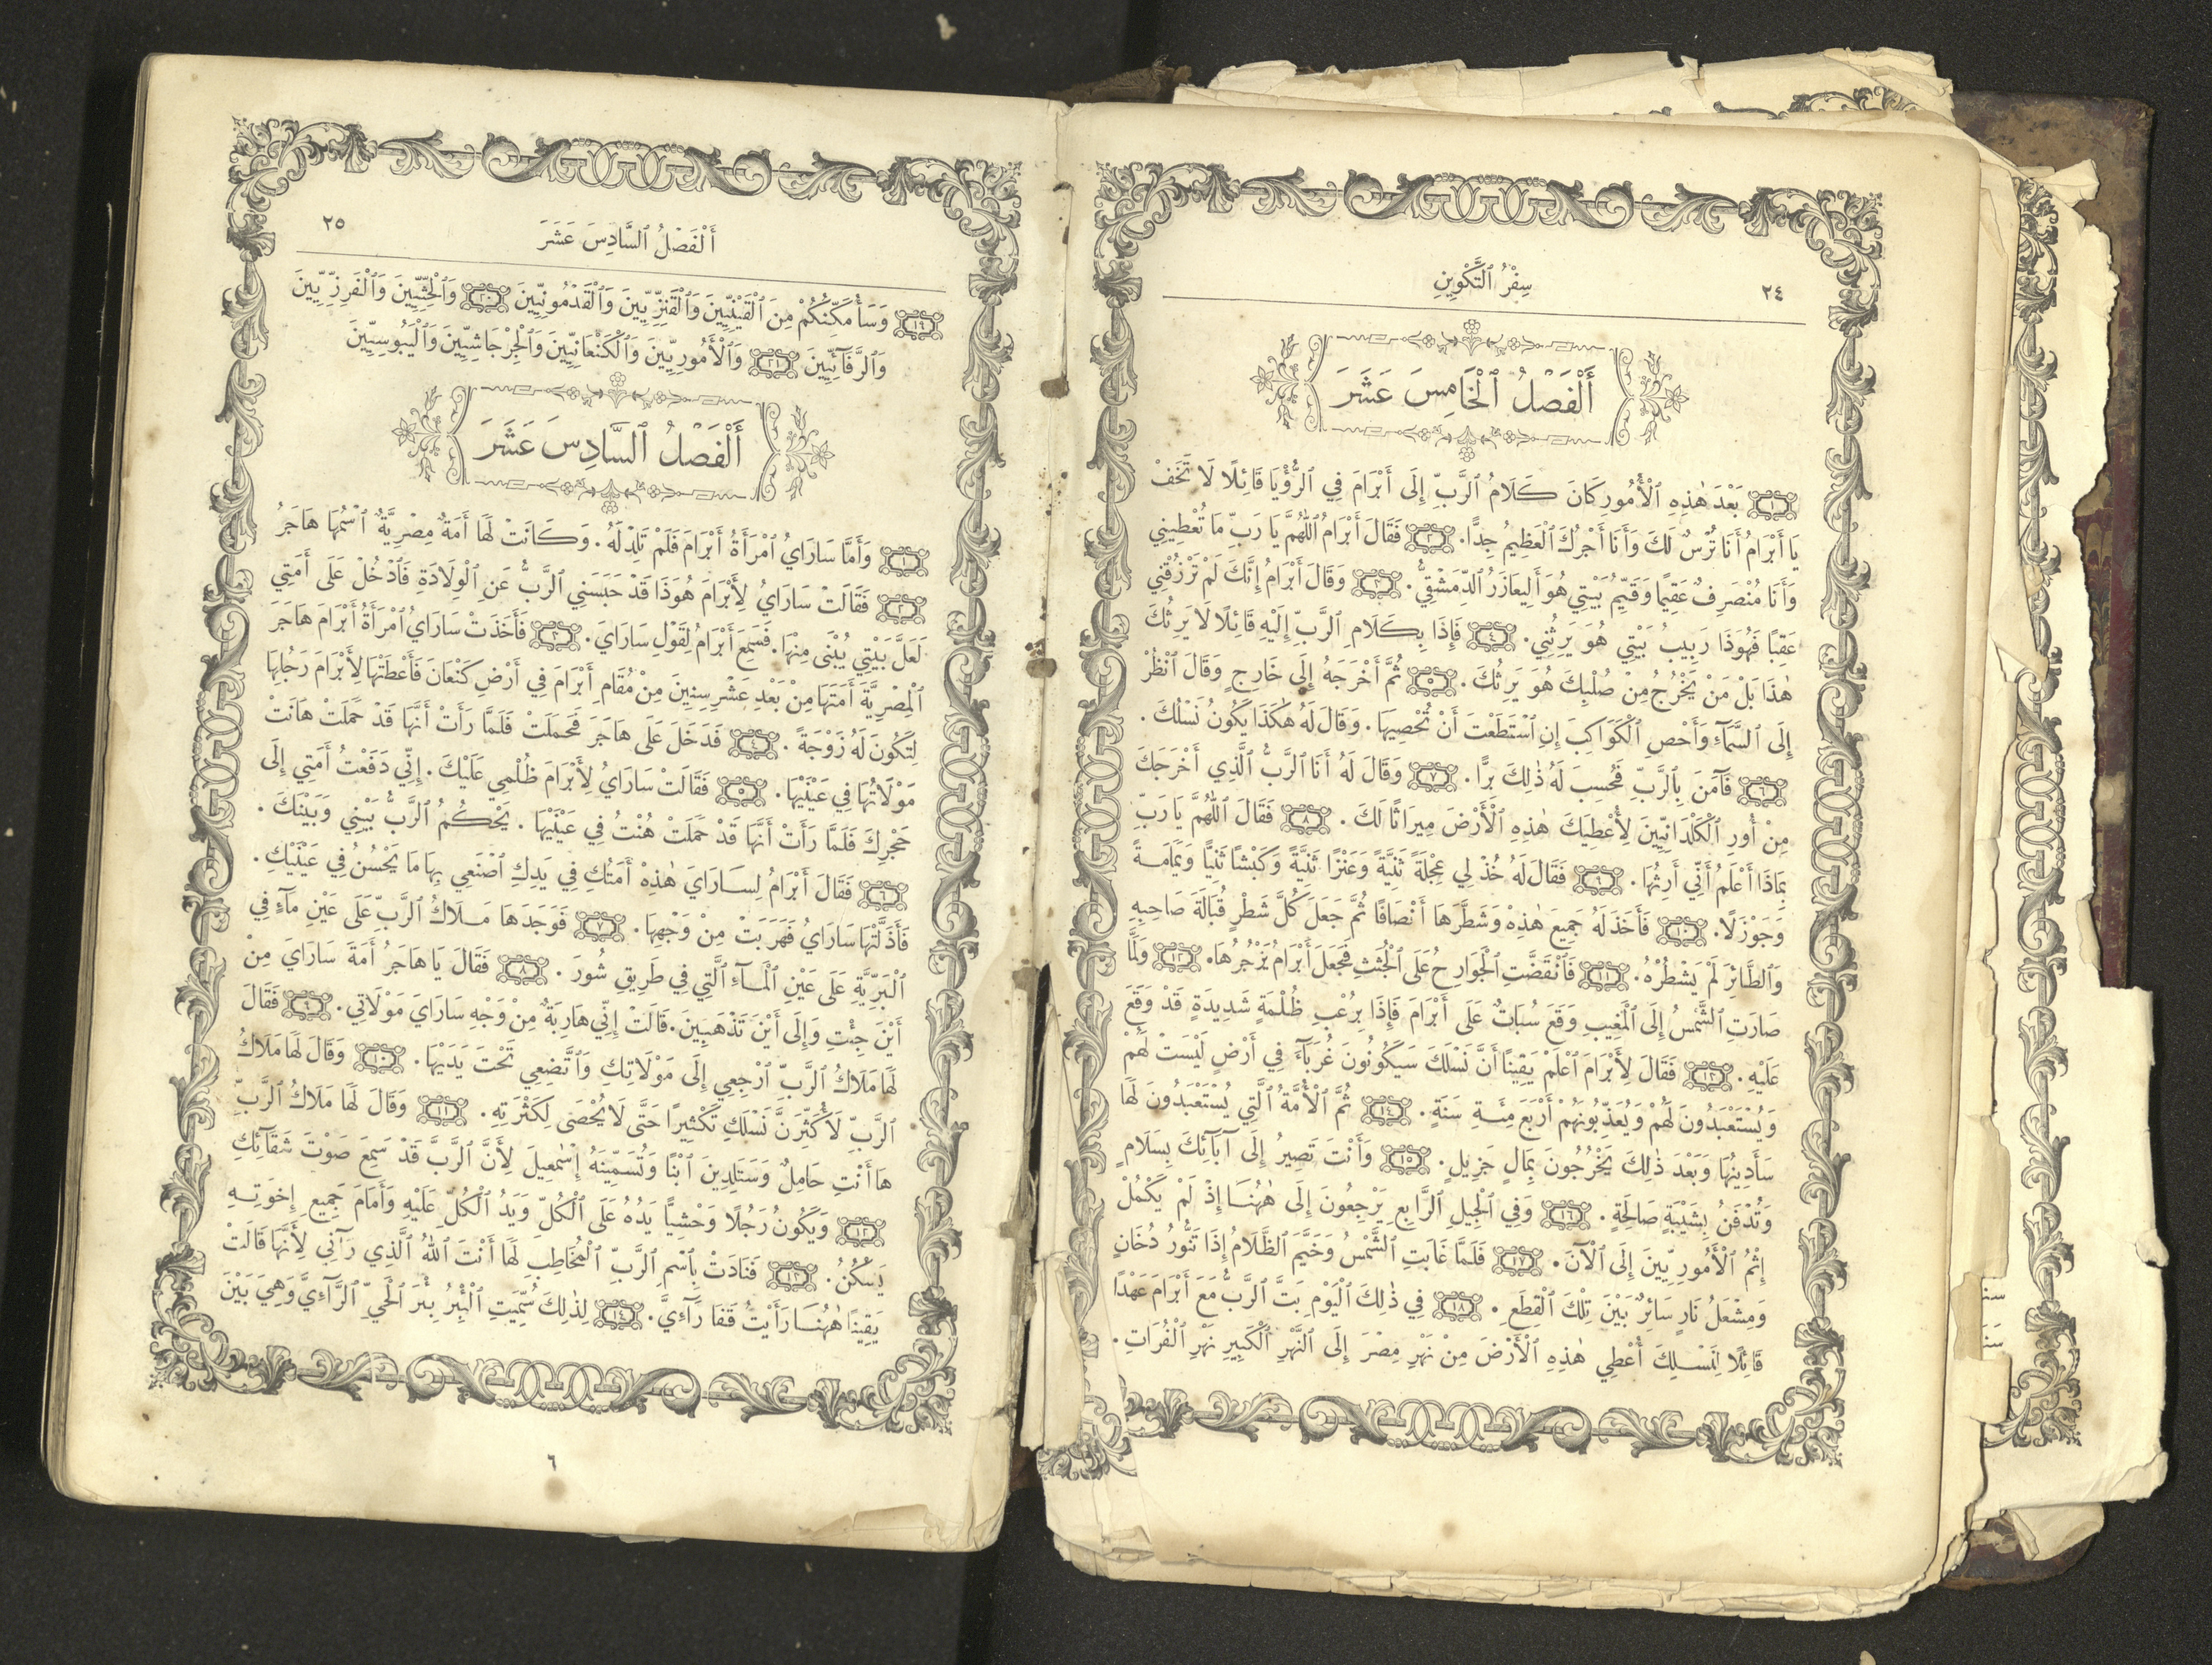 ٢٤
سِفْرُ ٱلتَّكْوِينِ
أَلْفَصْلُ ٱلْخَامِسَ عَشَرَ
١ بَعْدَ هٰذِهِ ٱلْأُمُورِ كَانَ كَلَامُ ٱلرَّبِّ إِلَى أَبْرَامَ فِي ٱلرُّؤْيَا قَائِلًا لَا تَخَفْ
يَا أَبْرَامُ أَنَا تُرْسٌ لَكَ وَأَنَا أَجْرُكَ ٱلْعَظِيمُ جِدًّا. ٢ فَقَالَ أَبْرَامُ ٱللّٰهُمَّ يَا رَبِّ مَا تُعْطِينِي
وَأَنَا مُنْصَرِفٌ عَقِيمًا وَقَيِّمُ بَيْتِي هُوَ أَلِيعَازَرُ ٱلدِّمَشْقِيُّ. ٣ وَقَالَ أَبْرَامُ إِنَّكَ لَمْ تَرْزُقْنِي
عَقِبًا فَهُوَذَا رَبِيبُ بَيْتِي هُوَ يَرِثُنِي. ٤ فَإِذَا بِكَلَامِ ٱلرَّبِّ إِلَيْهِ قَائِلًا لَا يَرِثُكَ
هٰذَا بَلْ مَنْ يَخْرُجُ مِنْ صُلْبِكَ هُوَ يَرِثُكَ. ٥ ثُمَّ أَخْرَجَهُ إِلَى خَارِجٍ وَقَالَ ٱنْظُرْ
إِلَى ٱلسَّمَآءِ وَأَحْصِ ٱلْكَوَاكِبَ إِنِ ٱسْتَطَعْتَ أَنْ تُحْصِيَهَا. وَقَالَ لَهُ هٰكَذَا يَكُونُ نَسْلُكَ.
٦ فَآمَنَ بِٱلرَّبِّ فَحُسِبَ لَهُ ذٰلِكَ بِرًّا. ٧ وَقَالَ لَهُ أَنَا ٱلرَّبُّ ٱلَّذِي أَخْرَجَكَ
مِنْ أُورِ ٱلْكَلْدَانِيِّينَ لِأُعْطِيَكَ هٰذِهِ ٱلْأَرْضَ مِيرَاثًا لَكَ. ٨ فَقَالَ ٱللّٰهُمَّ يَا رَبِّ
بِمَاذَا أَعْلَمُ أَنِّي أَرِثُهَا. ٩ فَقَالَ لَهُ خُذْ لِي عِجْلَةً ثَنِيَّةً وَعَنْزًا ثَنِيَّةً وَكَبْشًا ثَنِيًّا وَيَمَامَةً
وَجَوْزَلًا. ١٠ فَأَخَذَ لَهُ جَمِيعَ هٰذِهْ وَشَطَّرَهَا أَنْصَافًا ثُمَّ جَعَلَ كُلَّ شَطْرٍ قُبَالَةَ صَاحِبِهِ
وَٱلطَّائِرَ لَمْ يَشْطُرْهُ. ١١ فَٱنْقَضَّتِ ٱلْجَوَارِحُ عَلَى ٱلْجُثَثِ فَجَعَلَ أَبْرَامُ يَزْجُرُهَا. ١٢ وَلَمَّا
صَارَتِ ٱلشَّمْسُ إِلَى ٱلْمَغِيبِ وَقَعَ سُبَاتٌ عَلَى أَبْرَامَ فَإِذَا بِرُعْبِ ظُلْمَةٍ شَدِيدَةٍ قَدْ وَقَعَ
عَلَيْهِ. ١٣ فَقَالَ لِأَبْرَامَ ٱعْلَمْ يَقِينًا أَنَّ نَسْلَكَ سَيَكُونُونَ غُرَبَآءَ فِي أَرْضٍ لَيْسَتْ لَهُمْ
وَيُسْتَعْبَدُونَ لَهُمْ وَيُعَذِّبُونَهُمْ أَرْبَعَ مِئَةِ سَنَةٍ. ١٤ ثُمَّ ٱلْأُمَّةُ ٱلَّتِي يُسْتَعْبَدُونَ لَهَا
سَأَدِينُهَا وَبَعْدَ ذٰلِكَ يَخْرُجُونَ بِمَالٍ جَزِيلٍ. ١٥ وَأَنْتَ تَصِيرُ إِلَى آبَآئِكَ بِسَلَامٍ
وَتُدْفَنُ بِشَيْبَةٍ صَالِحَةٍ. ١٦ وَفِي ٱلْجِيلِ ٱلرَّابِعِ يَرْجِعُونَ إِلَى هٰهُنَا إِذْ لَمْ يَكْمُلْ
إِثْمُ ٱلْأَمُورِيِّينَ إِلَى ٱلْآنَ. ١٧ فَلَمَّا غَابَتِ ٱلشَّمْسُ وَخَيَّمَ ٱلظَّلَامُ إِذَا تَنُّورُ دُخَانٍ
وَمِشْعَلُ نَارٍ سَائِرٌ بَيْنَ تِلْكَ ٱلْقِطَعِ. ١٨ فِي ذٰلِكَ ٱلْيَوْمِ بَتَّ ٱلرَّبُّ مَعَ أَبْرَامَ عَهْدًا
قَائِلًا لِنَسْلِكَ أُعْطِي هٰذِهِ ٱلْأَرْضَ مِنْ نَهْرِ مِصْرَ إِلَى ٱلنَّهْرِ ٱلْكَبِيرِ نَهْرِ ٱلْفُرَاتِ.
أَلْفَصْلُ ٱلسَّادِسَ عَشَرَ
٢٥
١٤ وَسَأُمَكِّنُكُمْ مِنَ ٱلْقَيْنِيِّينَ وَٱلْقَنِزِّيِّينَ وَٱلْقَدْمُونِيِّينَ ٢٠ وَٱلْحِثِّيِّينَ وَٱلْفَرِزِّيِّينَ
وَٱلرَّفَآئِيِّينَ ٢١ وَٱلْأَمُورِيِّينَ وَٱلْكَنْعَانِيِّينَ وَٱلْجِرْجَاشِيِّينَ وَٱلْيَبُوسِيِّينَ
أَلْفَصْلُ ٱلسَّادِسَ عَشَرَ
١ وَأَمَّا سَارَايُ ٱمْرَأَةُ أَبْرَامَ فَلَمْ تَلِدْ لَهُ. وَكَانَتْ لَهَا أَمَةٌ مِصْرِيَّةٌ ٱسْمُهَا هَاجَرُ
٢ فَقَالَتْ سَارَايُ لِأَبْرَامَ هُوَذَا قَدْ حَبَسَنِي ٱلرَّبُّ عَنِ ٱلْوِلَادَةِ فَٱدْخُلْ عَلَى أَمَتِي
لَعَلَّ بَيْتِي يُبْنَى مِنْهَا. فَسَمِعَ أَبْرَامُ لِقَوْلِ سَارَايَ. ٣ فَأَخَذَتْ سَارَايُ ٱمْرَأَةُ أَبْرَامَ هَاجَرَ
ٱلْمِصْرِيَّةَ أَمَتَهَا مِنْ بَعْدِ عَشْرِ سِنِينَ مِنْ مُقَامِ أَبْرَامَ فِي أَرْضِ كَنْعَانَ فَأَعْطَتْهَا لِأَبْرَامَ رَجُلِهَا
لِتَكُونَ لَهُ زَوْجَةً. ٤ فَدَخَلَ عَلَى هَاجَرَ فَحَمَلَتْ فَلَمَّا رَأَتْ أَنَّهَا قَدْ حَمَلَتْ هَانَتْ
مَوْلَاتُهَا فِي عَيْنَيْهَا. ٥ فَقَالَتْ سَارَايُ لِأَبْرَامَ ظُلْمِي عَلَيْكَ. إِنِّي دَفَعْتُ أَمَتِي إِلَى
حَجْرِكَ فَلَمَّا رَأَتْ أَنَّهَا قَدْ حَمَلَتْ هُنْتُ فِي عَيْنَيْهَا. يَحْكُمُ ٱلرَّبُّ بَيْنِي وَبَيْنَكَ.
٦ فَقَالَ أَبْرَامُ لِسَارَايَ هٰذِهْ أَمَتُكِ فِي يَدِكِ ٱصْنَعِي بِهَا مَا يَحْسُنُ فِي عَيْنَيْكِ.
فَأَذَلَّتْهَا سَارَايُ فَهَرَبَتْ مِنْ وَجْهِهَا. ٧ فَوَجَدَهَا مَلَاكُ ٱلرَّبِّ عَلَى عَيْنِ مَآءٍ فِي
ٱلْبَرِّيَّةِ عَلَى عَيْنِ ٱلْمَآءِ ٱلَّتِي فِي طَرِيقِ شُورَ. ٨ فَقَالَ يَا هَاجَرُ أَمَةَ سَارَايَ مِنْ
أَيْنَ جِئْتِ وَإِلَى أَيْنَ تَذْهَبِينَ. قَالَتْ إِنِّي هَارِبَةٌ مِنْ وَجْهِ سَارَايَ مَوْلَاتِي. ٩ فَقَالَ
لَهَا مَلَاكُ ٱلرَّبِّ ٱرْجِعِي إِلَى مَوْلَاتِكِ وَٱتَّضِعِي تَحْتَ يَدَيْهَا. ١٠ وَقَالَ لَهَا مَلَاكُ
ٱلرَّبِّ لَأُكَثِّرَنَّ نَسْلَكِ تَكْثِيرًا حَتَّى لَا يُحْصَى لِكَثْرَتِهِ. ١١ وَقَالَ لَهَا مَلَاكُ ٱلرَّبِّ
هَا أَنْتِ حَامِلٌ وَسَتَلِدِينَ ٱبْنًا وَتُسَمِّينَهُ إِسْمٰعِيلَ لِأَنَّ ٱلرَّبَّ قَدْ سَمِعَ صَوْتَ شَقَآئِكِ
١٢ وَيَكُونُ رَجُلًا وَحْشِيًّا يَدُهُ عَلَى ٱلْكُلِّ وَيَدُ ٱلْكُلِّ عَلَيْهِ وَأَمَامَ جَمِيعِ إِخْوَتِهِ
يَسْكُنُ. ١٣ فَنَادَتْ بِٱسْمِ ٱلرَّبِّ ٱلْمُخَاطِبِ لَهَا أَنْتَ ٱللّٰهُ ٱلَّذِي رَآنِي لِأَنَّهَا قَالَتْ
يَقِينًا هٰهُنَا رَأَيْتُ قَفَا رَآءِيَّ. ١٤ لِذٰلِكَ سُمِّيَتِ ٱلْبِئْرُ بِئْرَ ٱلْحَيِّ ٱلرَّآءِيَّ وَهِيَ بَيْنَ
٦